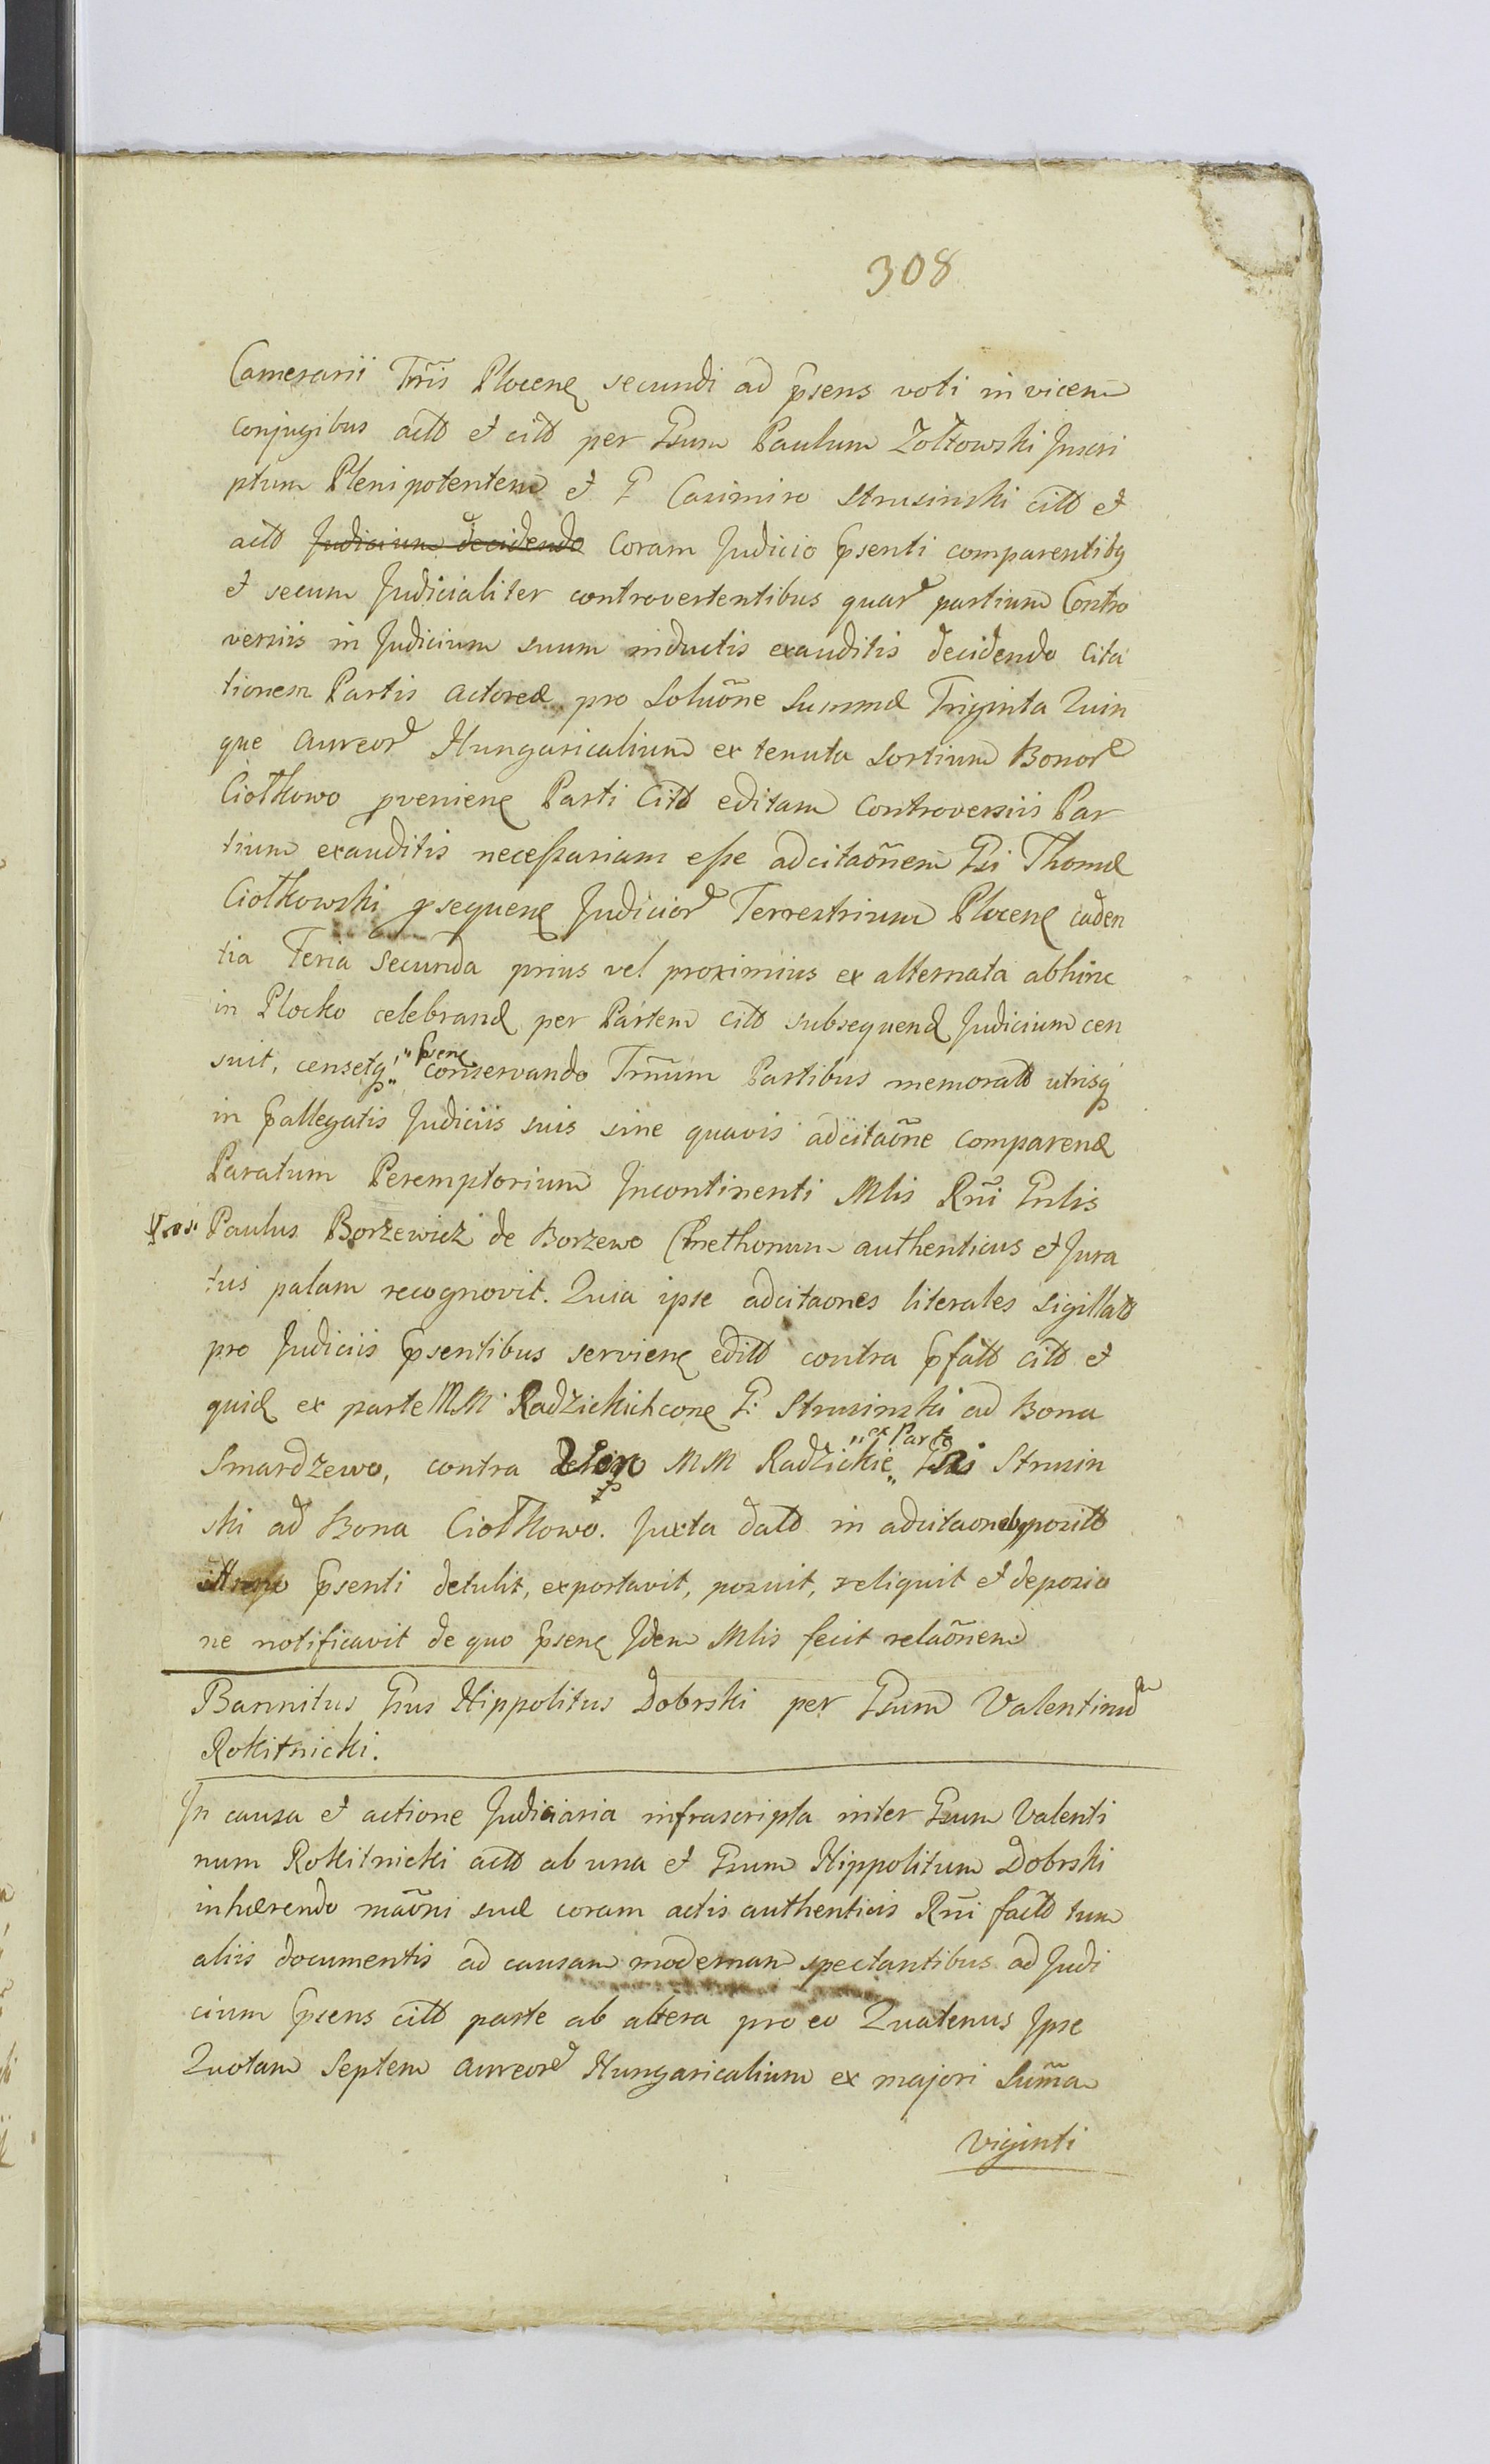 308
Camerarii Trĩs Plocenς secundi ad pśens voti invicem
conjugibus actō et citō per Gsum Paulum Zołtowski Inscri
ptum Plenipotentem et G Casimiro Strusinski citō et
actō Judicium decidendo Coram Judicio pśenti comparentibꝫ
et secum Judicialiter controvertentibus quar̃ partium Contro
versiis in Judicium suum inductis exauditis decidendo Cita
tionem Partis actoreæ pro Soluõne Summæ Triginta Quin
que aureor̃ Hungaricalium ex tenuta Sortium Bonor̃
Ciołkowo pvenienς Parti Citō editam Controversiis Par
tium exauditis necessariam esse adcitaõnem Gsi Thomæ
Ciołkowski psequenς Judicior̃ Terrestrium Plocenς caden
tia Feria Secunda prius vel proximius ex alternata abhinc
in Plocko celebranđ per Partem citō subsequenđ Judicium cen
suit, censetqꝫ „pśenς
conservando Trm̃um Partibus memoratō utrisqꝫ
in pallegatis Judiciis suis sine quavis adcitaõne comparenđ
Paratum Peremptorium Incontinenti Mlis Rñi Gnlis
Paulus Borzewicz de Borzewo Cmethonum authenticus et Jura
tus palam recognovit. Quia ipse adcitaones literales Sigillatō
pro Judiciis pśentibus servienς editō contra pfatō citō et
quiđ ex parte MM Radzickich conς G. Strusinski ad Bona
Smardzewo, contra MM Radzickie „ex Parte„ Gsi Strusin
ski ad Bona Ciołkowo. Juxta datō in adcitaonebꝫ positō
pśenti detulit, exportavit, posuit, reliquit et de posio
ne notificavit de quo pśenς Idem Mlis fecit relaõnem
Bannitus Gsus Hippolitus Dobrski per Gsum Valentinum
Rokitnicki.
In causa et actione Judiciaria infrascripta inter Gsum Valenti
num Rokitnicki actō ab una et Gsum Hippolitum Dobrski
inhærendo maõni suæ coram actis authenticis Rñi factō tum
aliis documentis ad causam modernam spectantibus ad Judi
cium pśens citō parte ab altera pro eo Quatenus Ipse
Quotam Septem aureor̃ Hungaricalium ex majori Sum̃a
viginti